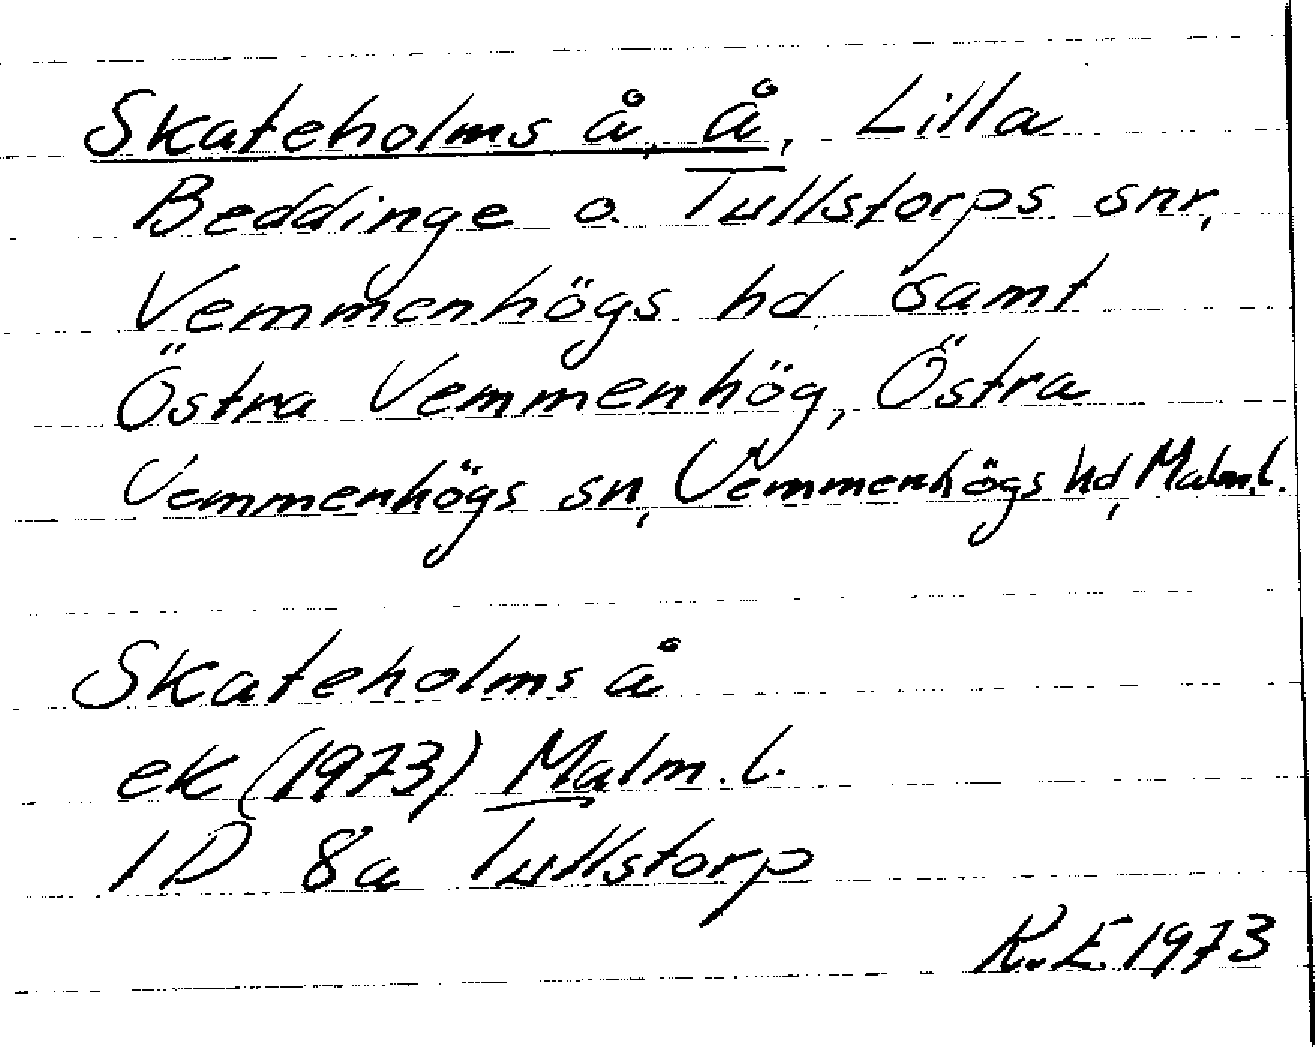 Skateholms å, å, Lilla
Beddinge o. Tullstorps snr,
Vemmenhögs hd samt
Östra Vemmenhög, Östra
Vemmenhögs sn, Vemmenhögs hd, Malm.l.
Skateholms å
ek (1973) Malm.l.
1D 8a Tullstorp
K.E 1973